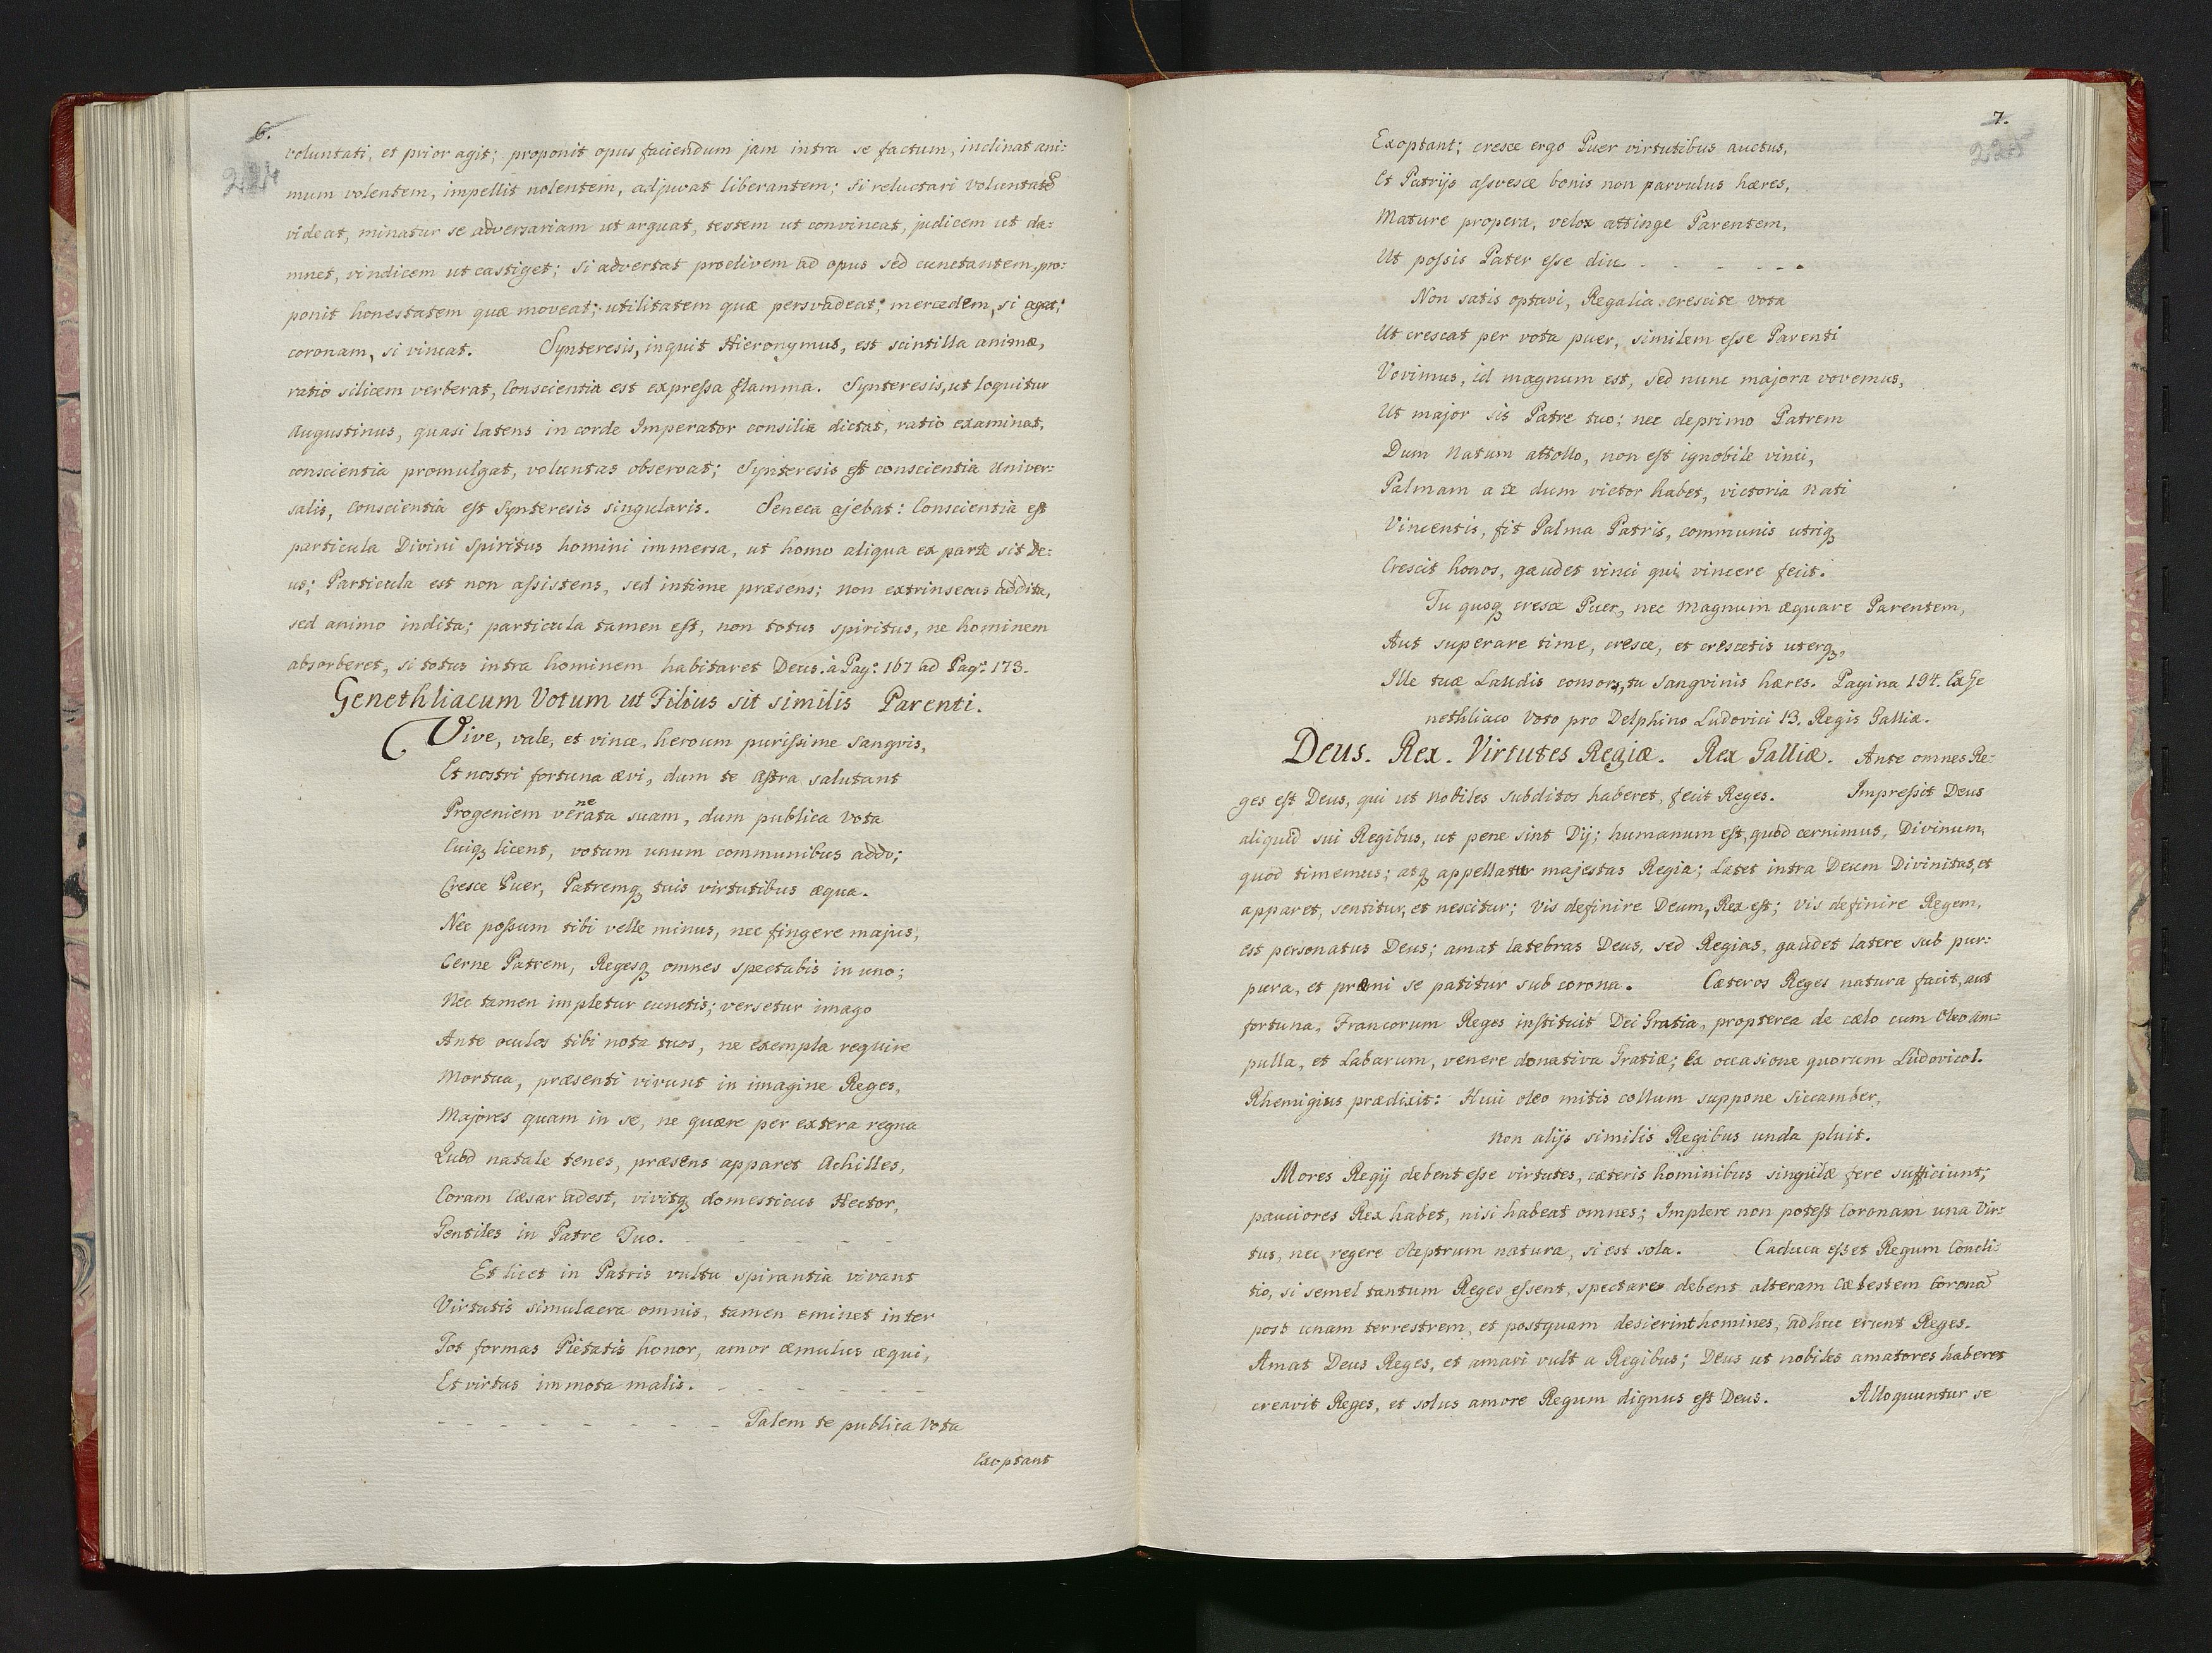 6.
224
voluntati, et prior agit; proponit opus faciendum jam intra se factum, inclinat ani:
mum volentem, impellit nolentem, adjuvat liberantem; si reluctari voluntatē
videat, minatur se adversariam ut arguat, testem ut convincat, judicem ut da:
mnet, vindicem ut castiget; si advertat proclivem ad opus sed cunctantem, pro:
ponit honestatem quæ moveat; utilitatem quæ persvadeat; mercedem, si agat;
coronam, si vincat. Synteresis, inquit Hieronymus, est scintilla animæ,
ratio silicem verberat, Conscientia est expreſsa flamma. Synteresis, ut loquitur
Augustinus, quasi latens in corde Imperator consilia dictat, ratio examinat,
conscientia promulgat, voluntas observat; Synteresis eſt conscientia Univer:
salis, Conscientia eſt Synteresis singularis. Seneca ajebat: Conscientia eſt
particula Divini Spiritus homini immersa, ut homo aliqua ex parte sit De:
us; Particula est non aſsistens, sed intime præsens; non extrinsecus addita,
sed animo indita; particula tamen eſt, non totus spiritus, ne hominem
absorberet, si totus intra hominem habitaret Deus. à Pag: 167 ad Pag: 173.
Genethliacum Votum ut Filius sit similis Parenti.
Vive, vale, et vince, heroum puriſsime Sangvis,
Et nostri fortuna ævi, dum te Aſtra salutant
Progeniem verata suam, dum publica vota
ne
Cuiq licent, votum unum communibus addo;
Cresce Puer, Patremq tuis virtutibus æqua.
Nec poſsum tibi velle minus, nec fingere majus,
Cerne Patrem, Regesq omnes spectabis in uno;
Nec tamen impletur cunctis; versetur imago
Ante oculos tibi nota tuos, ne exempla require
Mortua, præsenti vivunt in imagine Reges,
Majores quam in se, ne quære per extera regna
Quod natale tenes, præsens apparet Achilles,
Coram Cæsar adest, vivitq domesticus Hector,
Gentiles in Patre Tuo. - - - - - -
Et licet in Patris vultu spirantia vivant
Virtutis simulacra omnis, tamen eminet inter
Tot formas Pietatis honor, amor æmulus æqui,
Et virtus immota malis. - - - - - - -
- - - - - - - - - - Talem te publica vota
Exoptant
7.
225
Exoptant; cresce ergo Puer virtutibus auctus,
Et Patrijs aſsvesce bonis non parvulus hæres,
Mature propera, velox attinge Parentem,
Ut poſsis Pater eſse diu - - - - - - .
Non satis optavi, Regalia crescite vota
Ut crescat per vota puer, similem eſse Parenti
Vovimus, id magnum est, sed nunc majora vovemus,
Ut major sis Patre tuo; nec deprimo Patrem
Dum Natum attollo, non eſt ignobile vinci,
Palmam a te dum victor habet, victoria Nati
Vincentis, fit Palma Patris, communis utriq
Crescit honos, gaudet vinci qui vincere fecit.
Tu quoq cresce Puer, nec Magnum æquare Parentem,
Aut superare time, cresce, et crescetis uterq,
Ille tuæ Laudis consors, tu Sangvinis hæres. Pagina 194. Ex Ge
nethliaco Voto pro Delphino Ludovici 13. Regis Galliæ.
Deus. Rex. Virtutes Regiæ. Rex Galliæ. Ante omnes Re:
ges eſt Deus, qui ut nobiles subditos haberet, fecit Reges. Impreſsit Deus
aliquid sui Regibus, ut pene sint Dij; humanum eſt, quod cernimus, Divinum,
quod timemus; atq appellatur majestas Regia; Latet intra Deum Divinitas, et
apparet, sentitur, et nescitur; vis definire Deum, Rex eſt; vis definire Regem,
est personatus Deus; amat latebras Deus, sed Regias, gaudet latere sub pur:
pura, et præmi se patitur sub corona. Cæteros Reges natura facit, aut
fortuna, Francorum Reges inſtituit Dei Gratia, propterea de cælo cum Oleo am:
pulla, et Labarum, venere donativa Gratiæ; Ea occasione quorum Ludovico 1.
Rhemigius prædixit: Huic oleo mitis collum suppone Siccamber,
Non alijs similis Regibus unda pluit.
Mores Regij debent eſse virtutes, cæteris hominibus singulæ fere sufficiunt,
pauciores Rex habet, nisi habeat omnes; Implere non poteſt Coronam una Vir:
tus, nec regere Sceptrum natura, si est sola. Caduca eſset Regum Condi:
tio, si semel tantum Reges eſsent, spectare debent alteram Cælestem Coronā
post unam terrestrem, et postquam desierint homines, adhuc erunt Reges.
Amat Deus Reges, et amari vult a Regibus; Deus ut nobiles amatores haberet
creavit Reges, et solus amore Regum dignus eſt Deus. Alloquuntur se